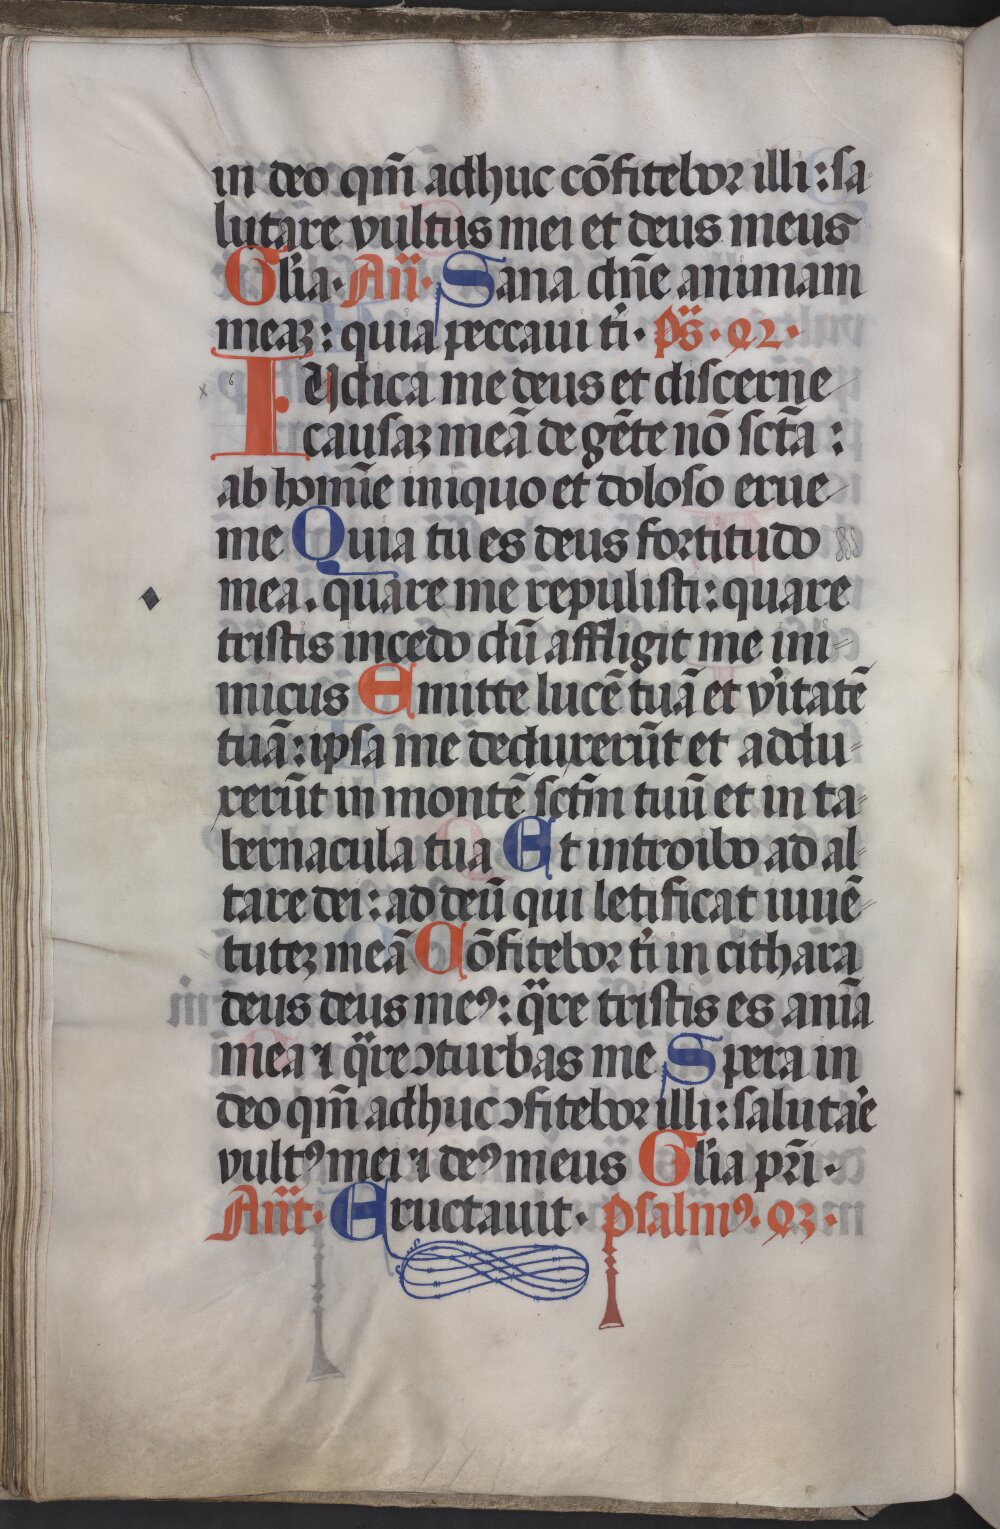 in deo qm̄ adhuc cōfitebor illi : sa⸗
lutare vultus mei et deus meus
Gľia · An̄ · Sana dn̄e animam
meaʒ : quia peccaui ti̇ · pṡ · 42 ·
IUdica me deus et discerne
causaʒ meā de gēte nō sctā :
ab homīe iniquo et doloso erue
me Quia tu es deus fortitudo
mea . quare me repulisti : quare
tristis incedo dū affligit me ini⸗
micus Emitte lucē tuā et v̓itatē
tuā : ipsa me deduxerūt et addu⸗
xerūt in montē sctm̄ tuū et in ta⸗
bernacula tua Et introibo ad al⸗
tare dei : ad deū qui letificat iuuē⸗
tuteʒ meā Cōfitebor ti̇ in cithara
deus deus meꝰ : qͣre tristis es anīa
mea ⁊ qͣre ↄturbas me Spera in
deo qm̄ adhuc ↄfitebor illi : saluta̓e
vultꝰ mei ⁊ deꝰ meus Gľia pr̄i ·
An̄t · Eructauit · psalmꝰ · 43 ·